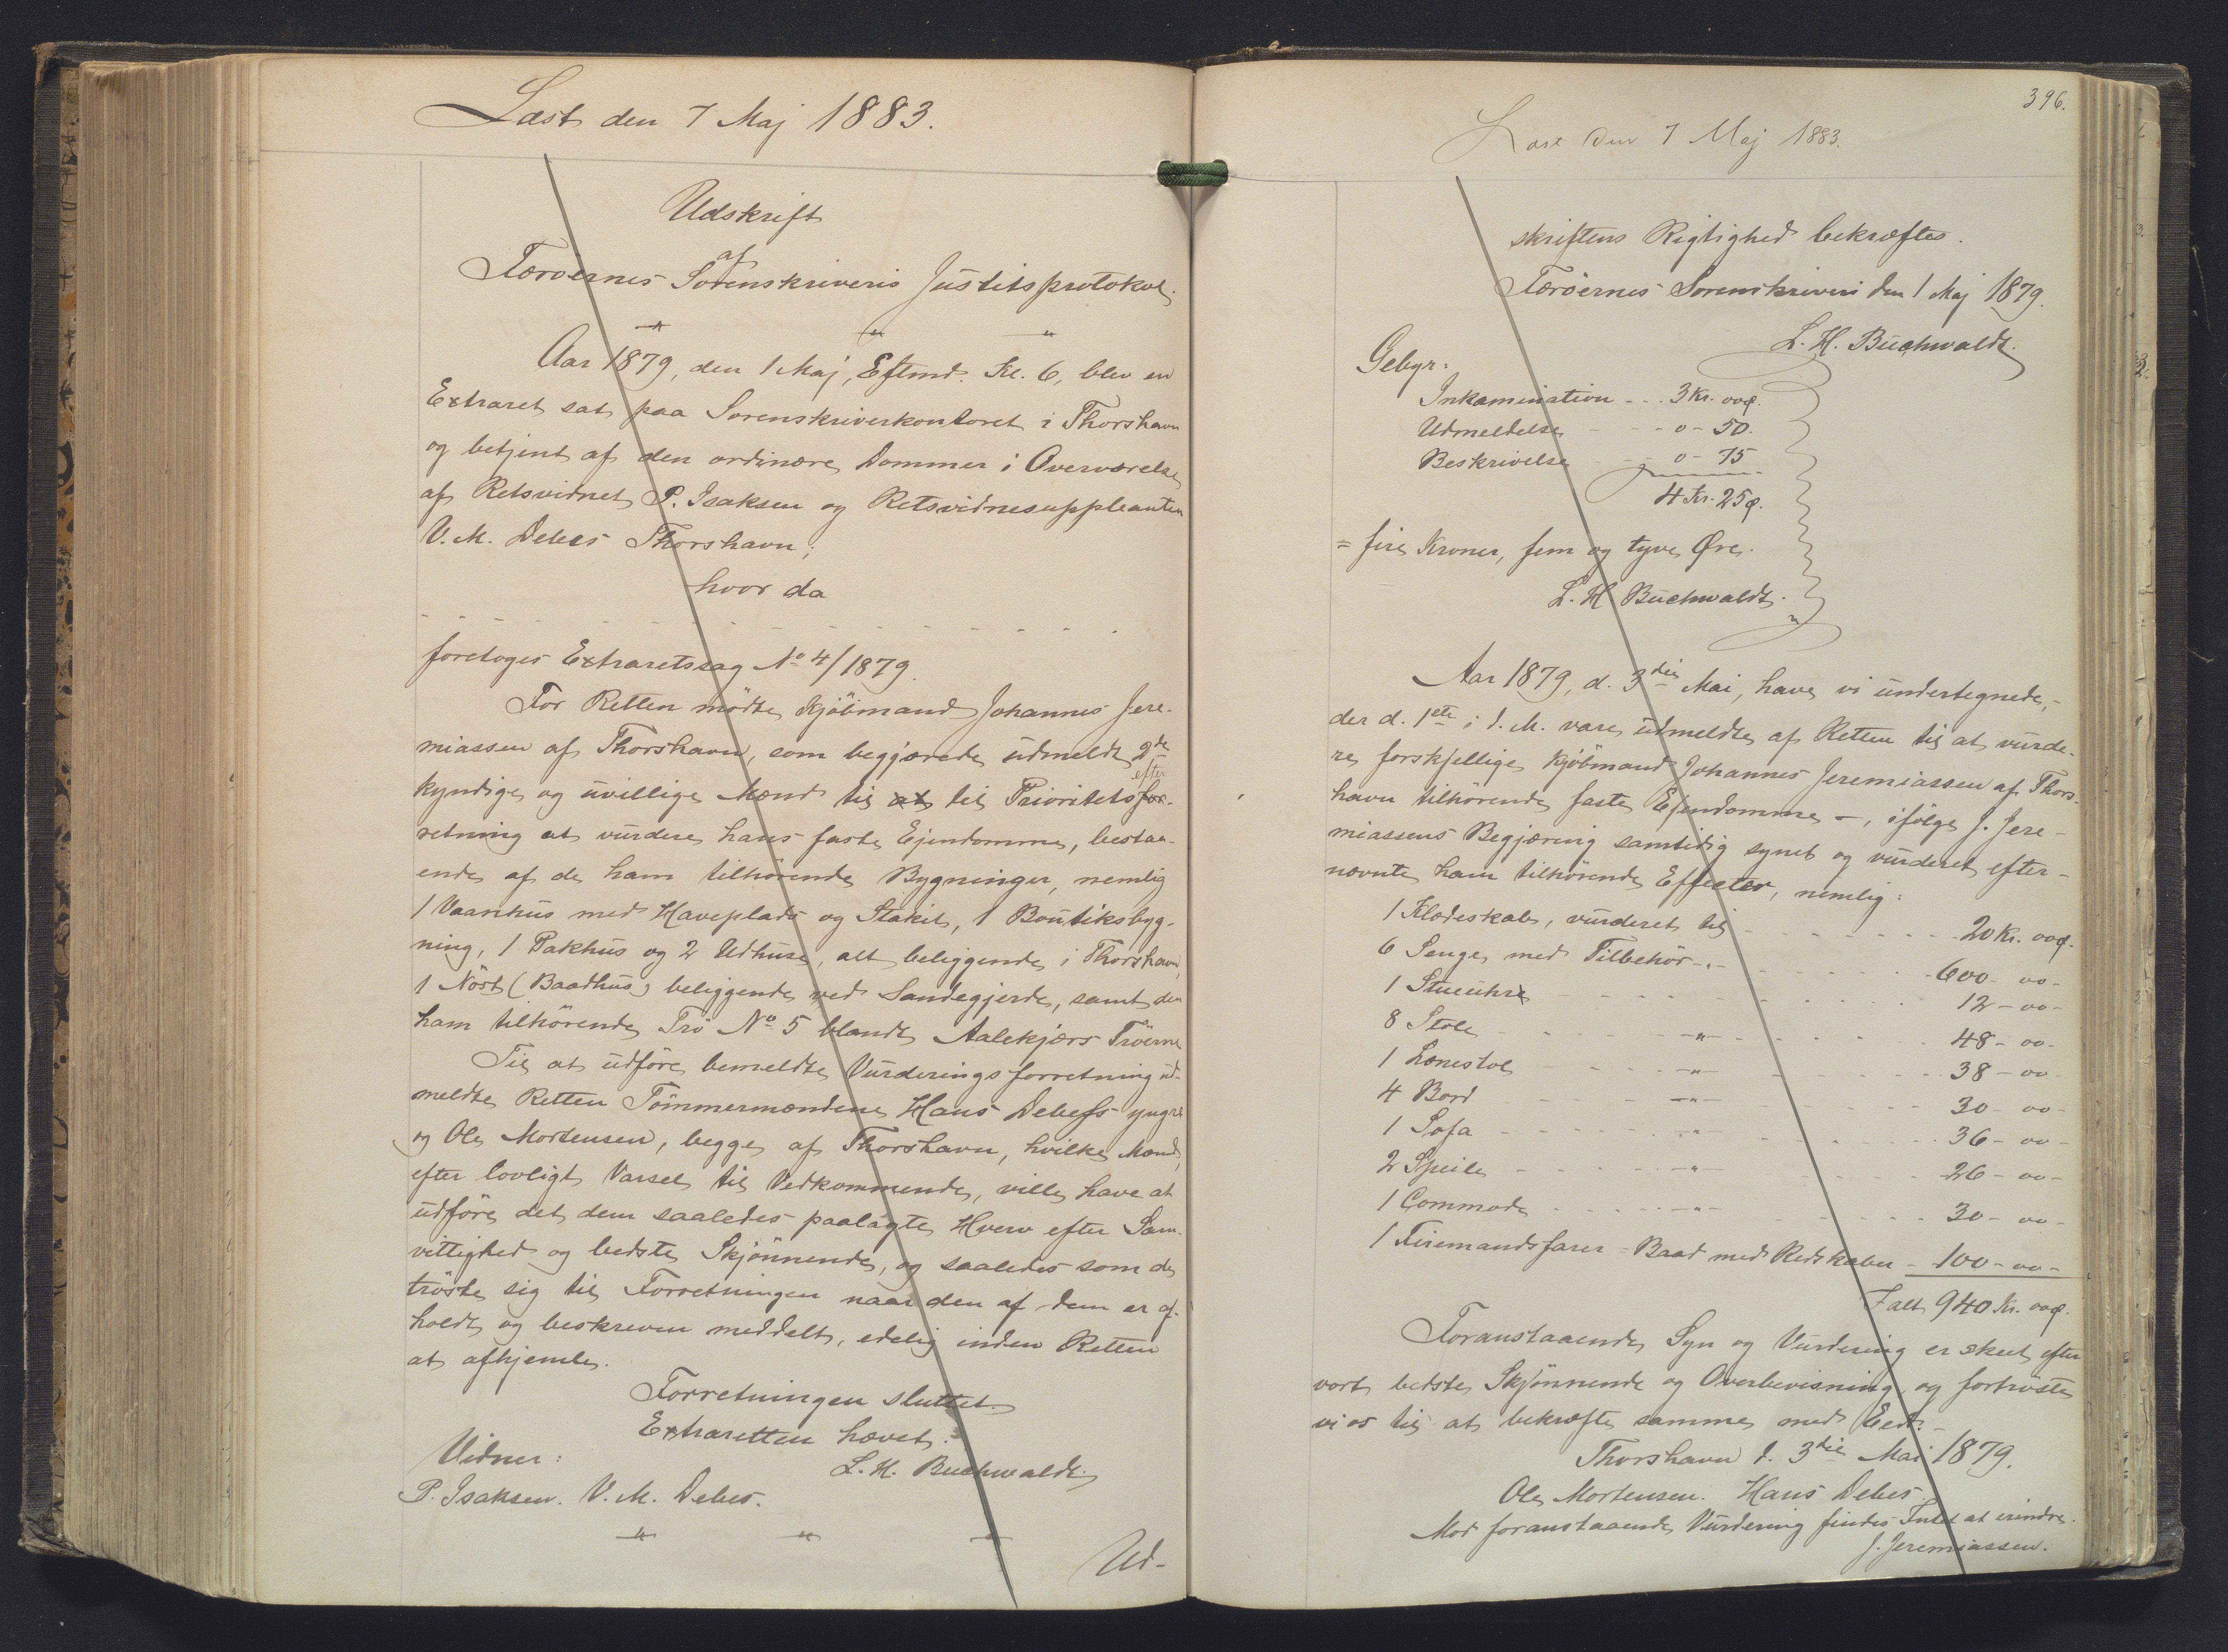 Læst den 7 Maj 1883.
Udskrift
af
Færøernes Sorenskriveris Justitsprotokol.
" " "
Aar 1879, den 1 Maj, Eftmd. Kl. 6, blev en
Extraret sat paa Sorenskriverkontoret i Thorshavn
og betjent af den ordinære Dommer i Overværelse
af Retsvidnet P. Isaksen og Retsvidnesuppleanten
V. M. Debes Thorshavn;
hvor da
foretoges Extraretssag No 4/1879.
For Retten mødte Kjöbmand Johannes Jere-
miassen af Thorshavn, som begjærede udmeldt 2de
kyndige og uvillige Mænd til at til Prioritets efter for-
retning at vurdere hans faste Ejendomme, bestaa-
ende af de ham tilhörende Bygninger, nemlig
1 Vaanhus med Haveplads og Stakit, 1 Boutiksbyg-
ning, 1 Pakhus og 2 Udhuse, alt beliggende i Thorshavn,
1 Nöst (Baadhus) beliggende ved Sandegjerde, samt den
ham tilhörende Trö No 5 blandt Aalekjærs Tröerne
Til at udföre bemeldte Vurderingsforretning ud-
meldte Retten Tömmermændene Hans Debess yngre
og Ole Mortensen, begge af Thorshavn, hvilke Mænd,
efter lovligt Varsel til Vedkommende, ville have at
udföre det dem saaledes paalagte Hverv efter Sam-
vittighed og bedste Skjönnende, og saaledes som de
tröste sig til Forretningen naar den af dem er af-
holdt og beskreven meddelt, edelig inden Retten
at afhjemle.
Forretningen sluttet.
Extraretten hævet.
L. H. Buchwaldt.
Vidner:
P. Isaksen. V. M. Debes.
" " "
Ud-
396.
Læst den 7 Maj 1883.
skriftens Rigtighed bekræftes.
Færöernes Sorenskriveri den 1 Maj 1879.
L. H. Buchwaldt.
Gebyr:
Inkamination - - - 3 Kr. 00 Ø.
Udmeldelse - - - 0 - 50.
Beskrivelse - - - 0 - 75
4 Kr. 25 Ø.
= fire Kroner, fem og tyve Øre.
L. H. Buchwaldt.
Aar 1879, d. 3die Mai, have vi undertegnede,-
der d. 1ste i d. M. vare udmeldte af Retten til at vurde-
re forskjellige Kjöbmand Johannes Jeremiassen af Thors-
havn tilhörende faste Ejendomme -, ifölge J. Jere-
miassens Begjæring samtidig synet og vurderet efter-
nævnte ham tilhörende Effecter, nemlig:
1 Klædeskab, vurderet til - - - 20 Kr. 00 Ø.
6 Senge med Tilbehör - " - - - 600 - 00 -
1 Stueuhr - - - 12 - 00 -
8 Stole - - - " - - - 48 - 00 -
1 Lænestol - - - " - - - 38 - 00 -
4 Bord - - - " - - - 30 - 00 -
1 Sofa - - - " - - - 36 - 00 -
2 Speile - - - " - - - 26 - 00 -
1 Commode - - - " - - - 30 - 00 -
1 Firemandsfarer = Baad med Redskaber - 100 - 00 -
Ialt 940 Kr. 00 Ø.
Foranstaaende Syn og Vurdering er skeet efter
vort bedste Skjönnende og Overbevisning og fortröste
vi os til at bekræfte samme med Eed. -
Thorshavn d. 3die Mai 1879.
Ole Mortensen. Hans Debes
Mod foranstaaende Vurdering findes Intet at erindre.
J. Jeremiassen.